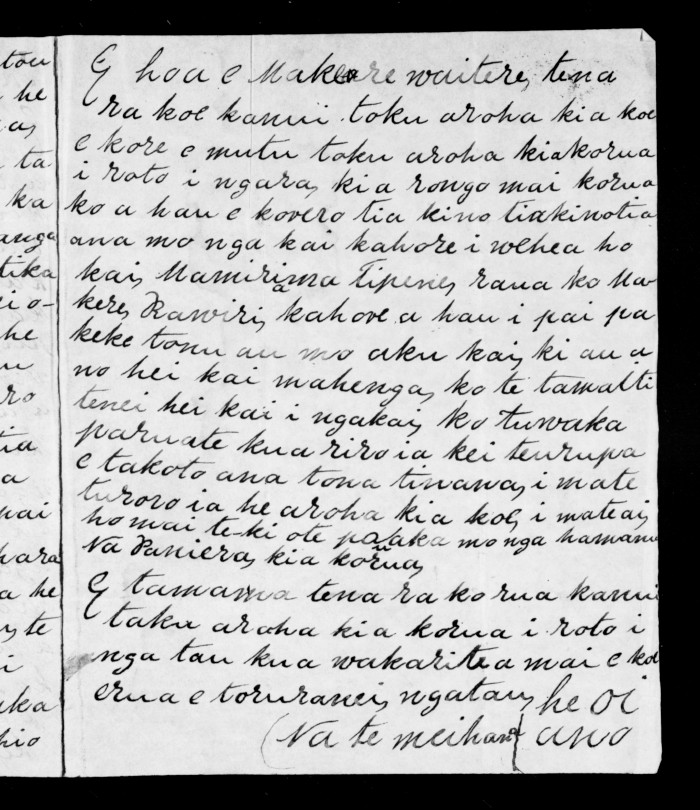 E hoa e Makarere waitere, tena
ra koe kamii toku aroha kia koe
e kore e mutu toku aroha kiakorua
i roto i ngara, kia rongo mai korua
ko a hau e kovero tia kino tiakinotia
ana mo nga kai kahore i wehea ho
kai, Mamirima Tipene, rana ko Ma
kere, Rawiri, kahore a hau i pai pa
keke tonu au mo aku kai, ki au a
no hei kai mahenga, ko te tamaiti
tenei hei kai i ngakai, ko Tuwaka
paruate kua riro ia kei teurupa
e takoto ana tona tinana, i mate
turoro ia he aroha kia koe, i mateai
ho mai te-ki ote paaka mo nga hamanu
Na Paniera, kia korua,
E tamama tena ra ko rua kamii
taku aroha kia korua i roto i
nga tau kua wakaritea mai e koe
erua e toruranei, ngatau, he oi
ano
(Na te meihana
tou
he
a,
ta
ka
anga
tika
ei o-
he
u
ro
tia
a
pai
hara
a he
y te
i
uka
hio